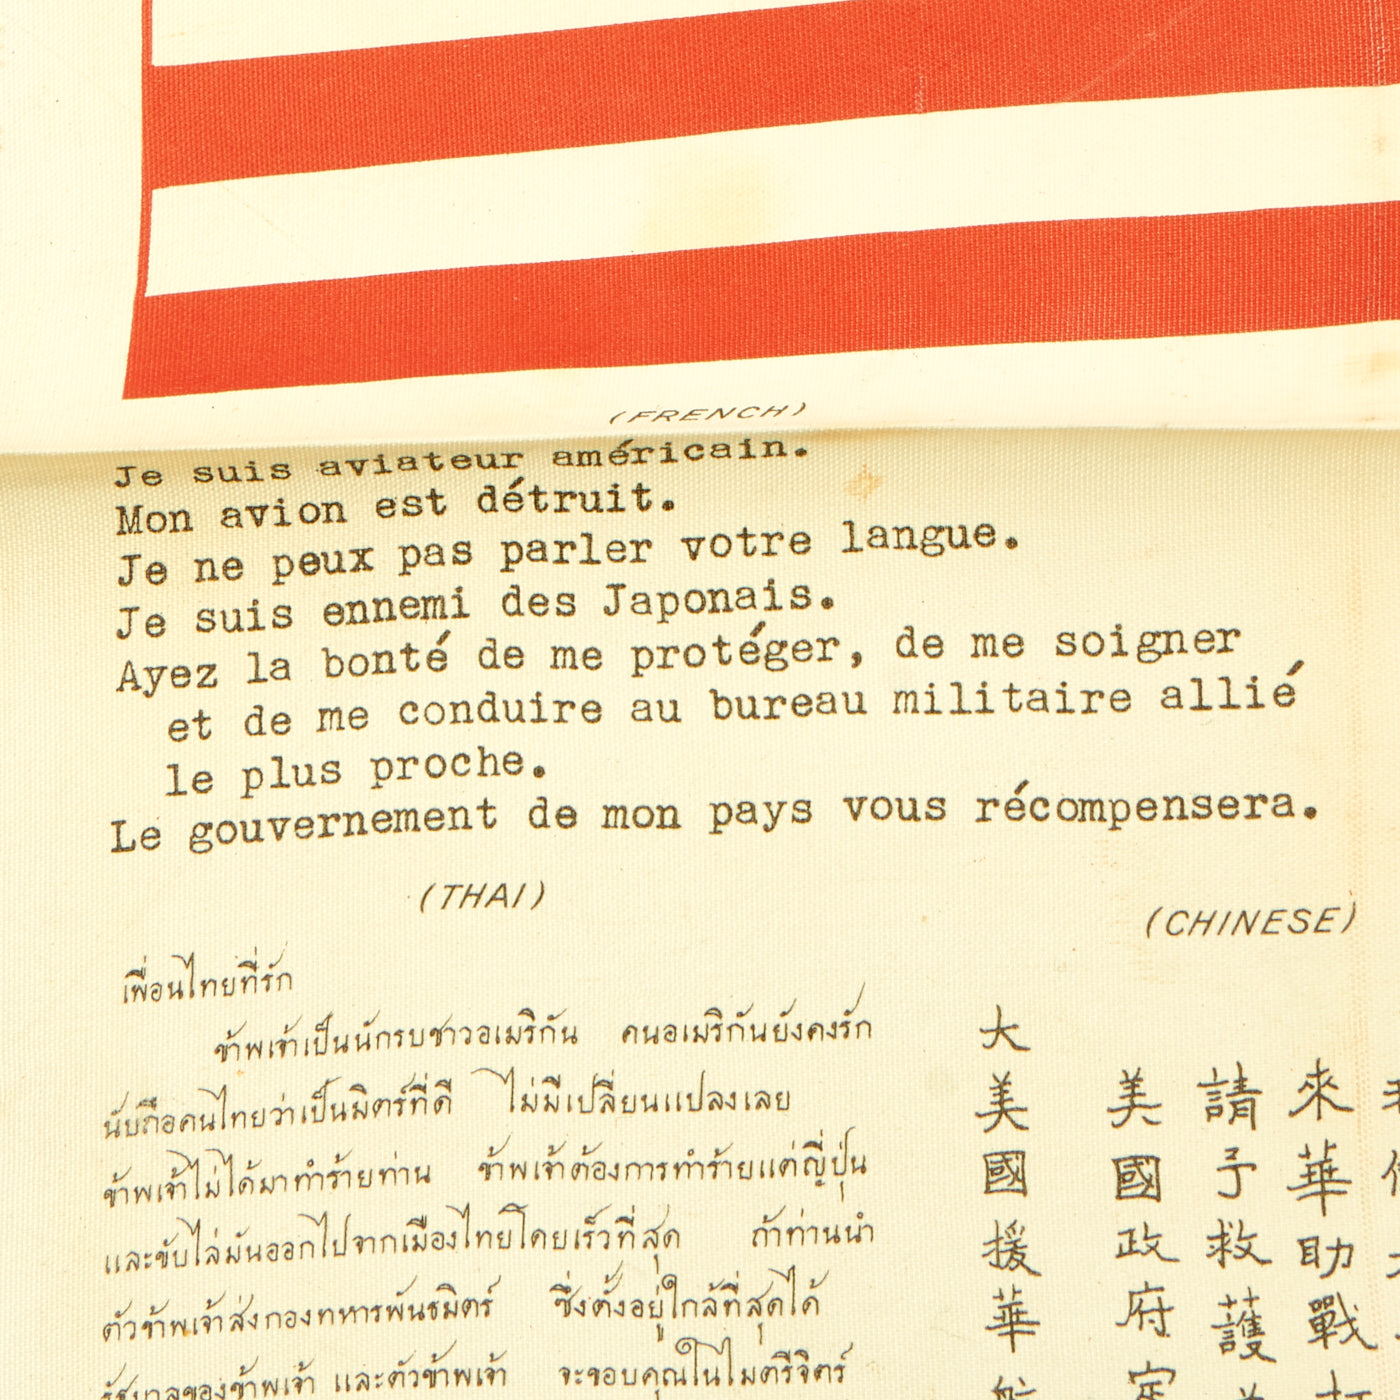 (FRENCH)
Je suis aviateur américain.
Mon avion est détruit.
Je ne peux pas parler votre langue.
Je suis ennemi des Japonais.
Ayez la bonté de me protéger, de me soigner
et de me conduire au bureau militaire allié
le plus proche.
Le gouvernement de mon pays vous récompensera.
(THAI)
เพื่อนไทยที่รัก
ข้าพเจ้าเป็นนักรบชาวอเมริกัน คนอเมริกันยังคงรัก
นับถือคนไทยว่าเป็นมิตร์ที่ดี ไม่มีเปลี่ยนแปลงเลย
ข้าพเจ้าไม่ได้มาทำร้ายท่าน ข้าพเจ้าต้องการทำร้ายแต่ญี่ปุ่น
และขับไล่มันออกไปจากเมืองไทยโดยเร็วที่สุด ถ้าท่านนำ
ตัวข้าพเจ้าส่งกองทหารพันธมิตร์ ซึ่งตั้งอยู่ใกล้ที่สุดได้
รัฐบาลของข้าพเจ้า และตัวข้าพเจ้า จะขอบคุณในไมตรีจิตร์
(CHINESE)
來華助戰
請予救護
美國政府定
大美國援華航